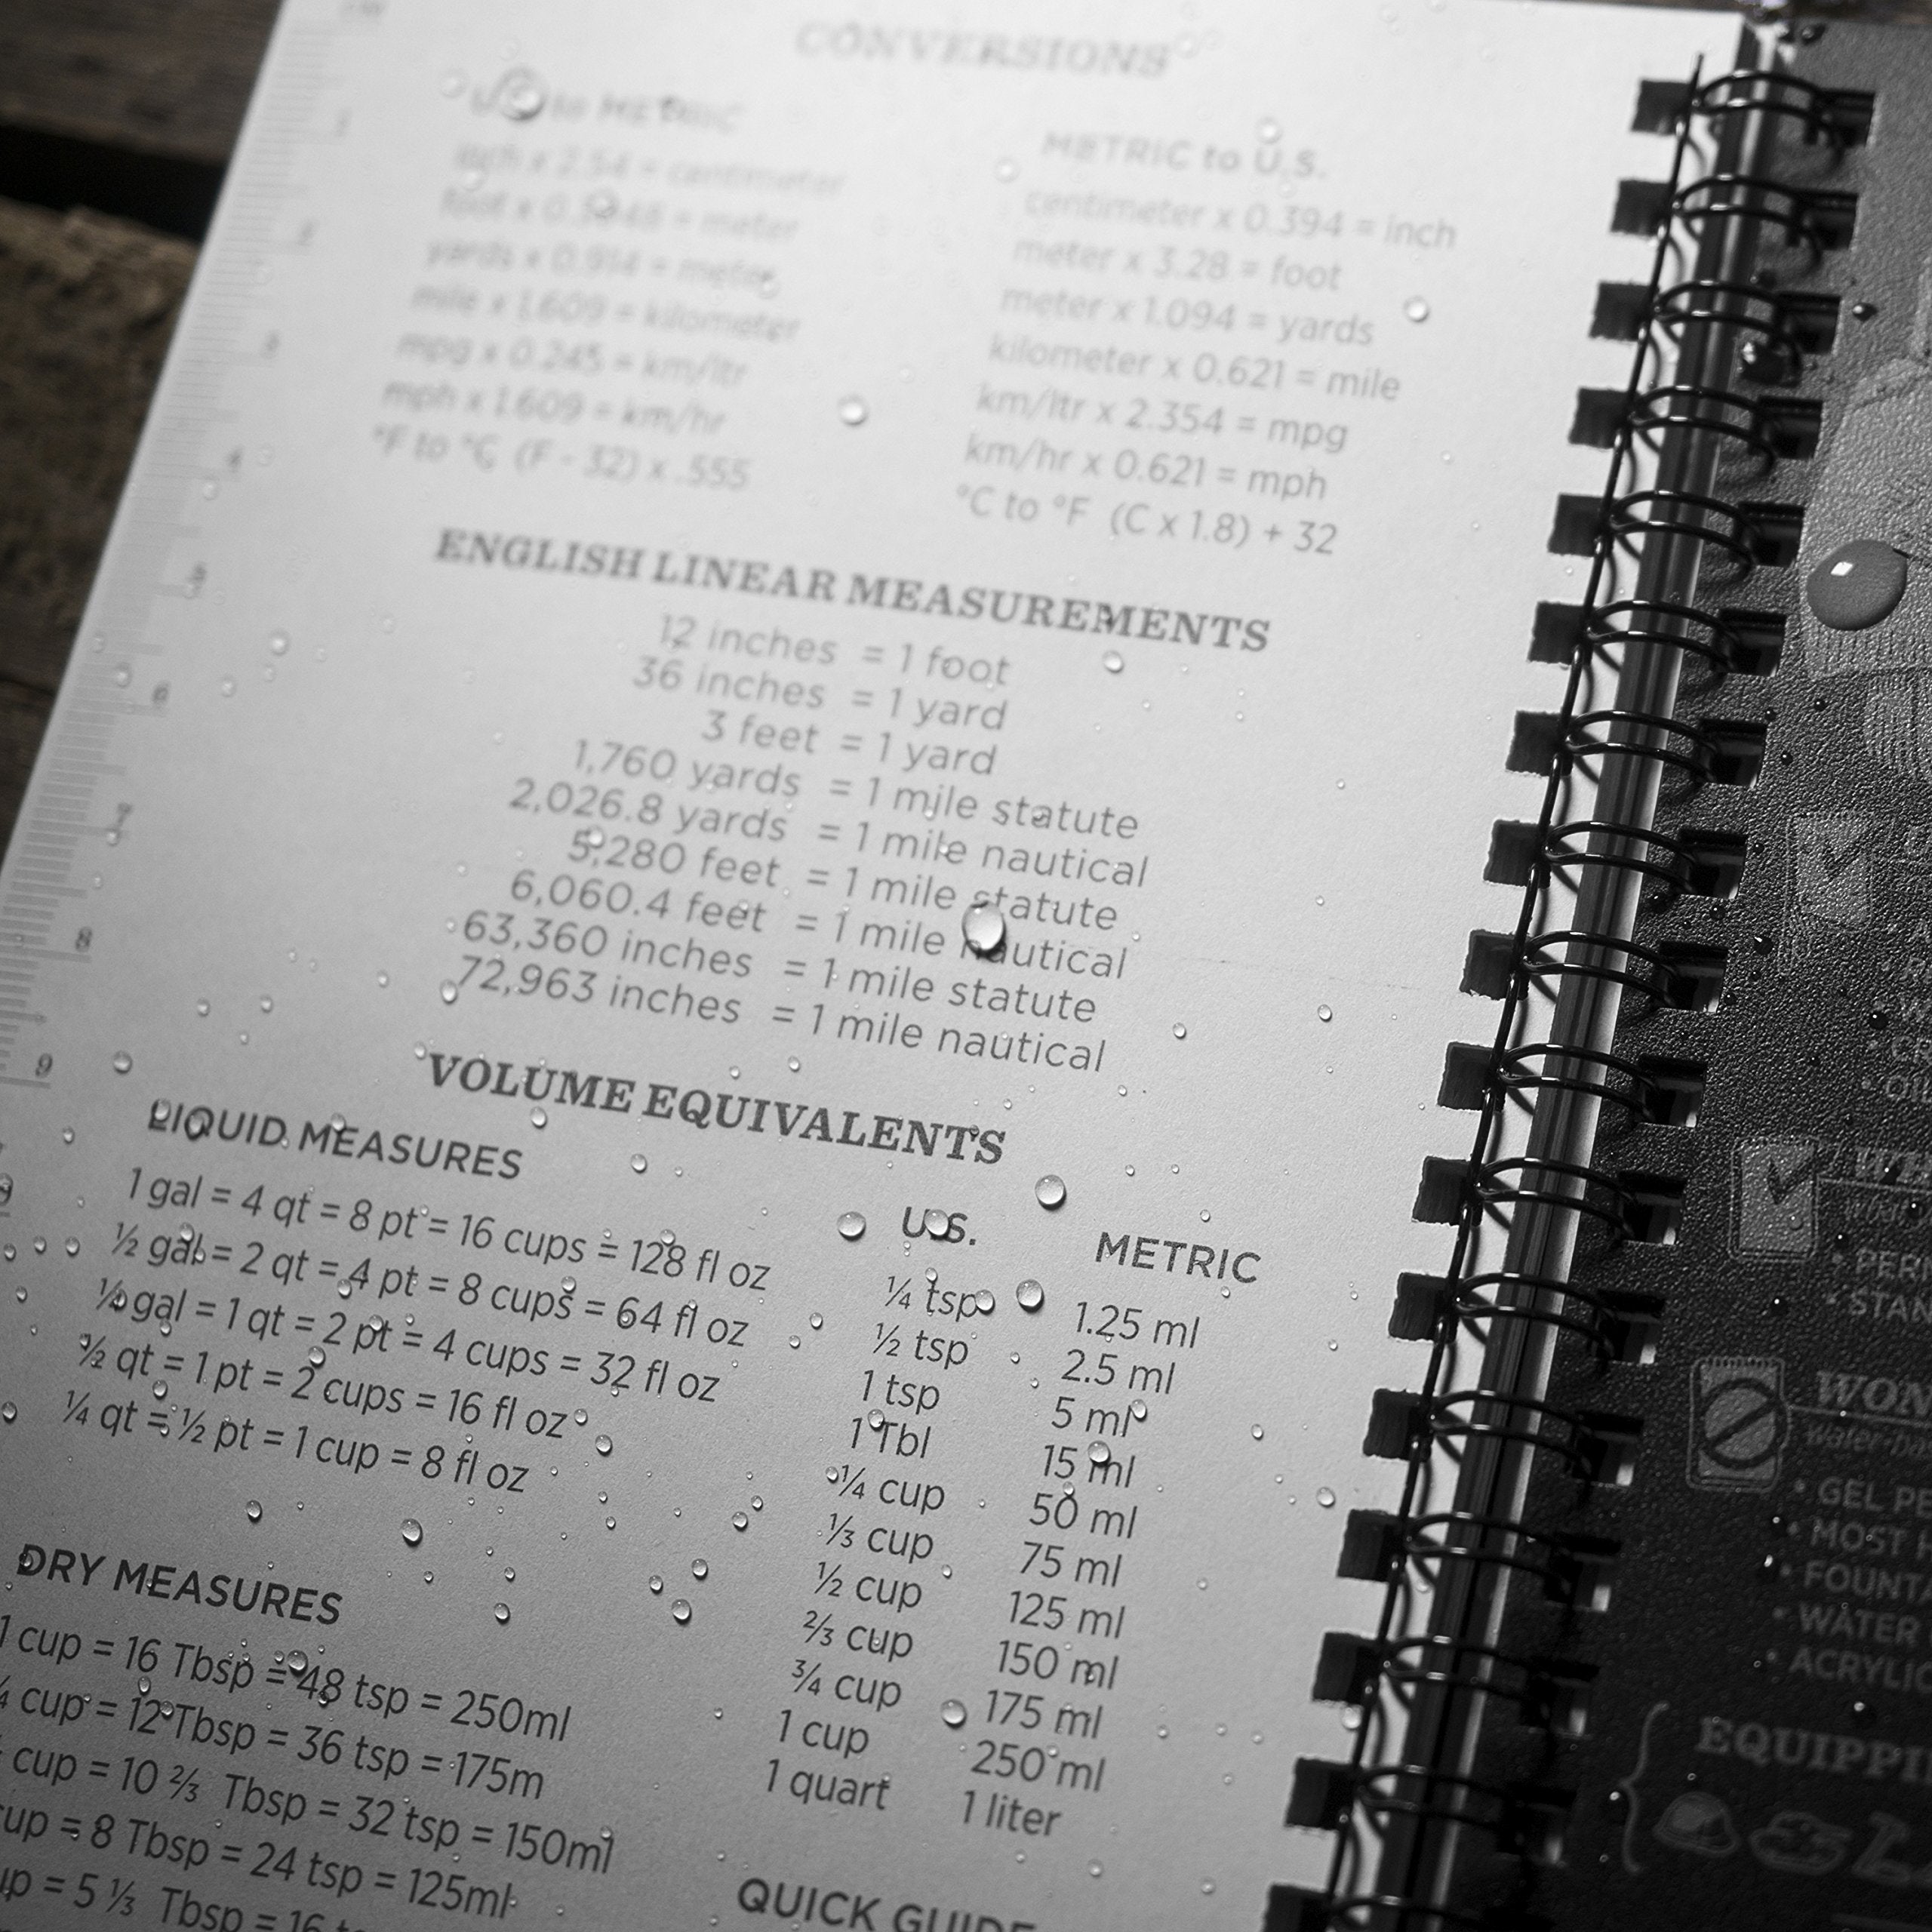 CONVERSIONS
U.S. to METRIC
inch x 2.54 = centimeter
foot x 0.3048 = meter
yards x 0.914 = meter
mile x 1.609 = kilometer
mpg x 0.245 = km/ltr
mph x 1.609 = km/hr
°F to °C (F - 32) x .555
METRIC to U.S.
centimeter x 0.394 = inch
meter x 3.28 = foot
meter x 1.094 = yards
kilometer x 0.621 = mile
km/ltr x 2.354 = mpg
km/hr x 0.621 = mph
°C to °F (C x 1.8) + 32
ENGLISH LINEAR MEASUREMENTS
12 inches = 1 foot
36 inches = 1 yard
3 feet = 1 yard
1,760 yards = 1 mile statute
2,026.8 yards = 1 mile nautical
5,280 feet = 1 mile statute
6,060.4 feet = 1 mile nautical
63,360 inches = 1 mile statute
72,963 inches = 1 mile nautical
VOLUME EQUIVALENTS
LIQUID MEASURES
1 gal = 4 qt = 8 pt = 16 cups = 128 fl oz
½ gal = 2 qt = 4 pt = 8 cups = 64 fl oz
¼ gal = 1 qt = 2 pt = 4 cups = 32 fl oz
½ qt = 1 pt = 2 cups = 16 fl oz
¼ qt = ½ pt = 1 cup = 8 fl oz
DRY MEASURES
1 cup = 16 Tbsp = 48 tsp = 250ml
cup = 12 Tbsp = 36 tsp = 175m
cup = 10 ⅔ Tbsp = 32 tsp = 150ml
cup = 8 Tbsp = 24 tsp = 125ml
= 5 ⅓ Tbsp = 16
U.S. METRIC
¼ tsp 1.25 ml
½ tsp 2.5 ml
1 tsp 5 ml
1 Tbl 15 ml
¼ cup 50 ml
⅓ cup 75 ml
½ cup 125 ml
⅔ cup 150 ml
¾ cup 175 ml
1 cup 250 ml
1 quart 1 liter
QUICK GUIDE
4
5
6
7
8
9
• GEL
• MOST
• WATER